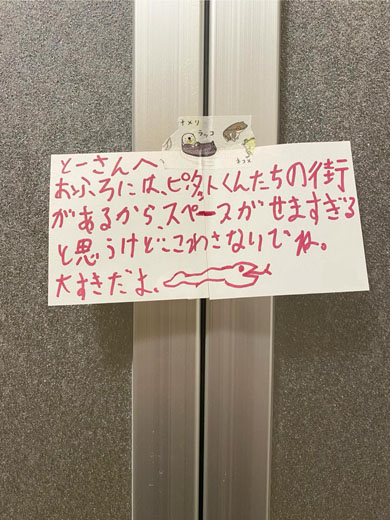 ナメリ
ラッコ
ネコメ
とーさんへ
おふろには、ピタットくんたちの街
があるから、スペースがせますぎる
と思うけどこわさないでね。
大すきだよ。